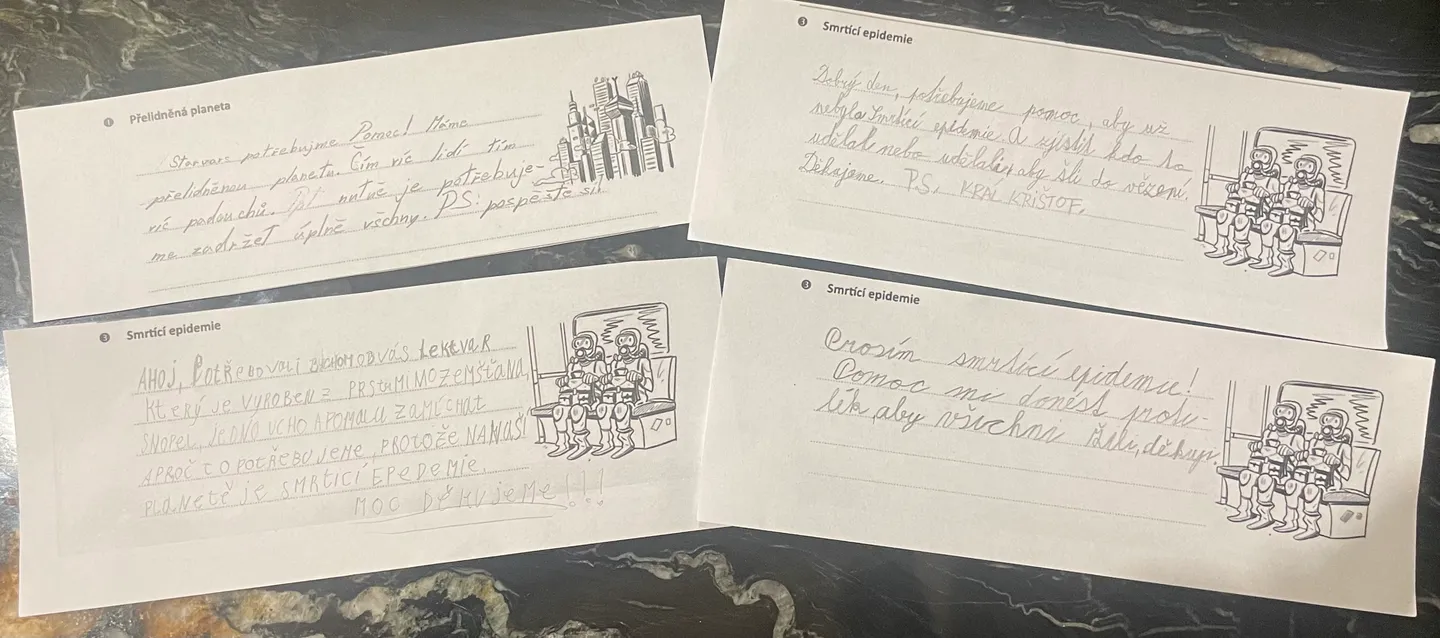 ❶ Přelidněná planeta
Starvars potřebujme Pomoc! Máme
přelidněnou planetu. Čím víc lidí tím
víc padouchů. nutně je potřebuje-
me zadržet úplně všchny. PS: pospěšte si!
❸ Smrtící epidemie
Dobrý den, potřebajeme pomoc, aby už
nebyla Smrtící epidmie. A zjistit kdo to
udělal nebo udělali, aby šli do vězení.
Děkajeme. P.S. KRÁL KRIŠTOF.
❸ Smrtící epidemie
AHOJ, POtŘEBOVALI BYCHOM OD VÁS LEKtVAR
KtERÝ JE VYROBEN Z PRStU MIMOZEMŠŤANA,
SNOPEL, JEDNO UCHO A POMALU ZAMÍCHAT
A PROČ TO POTŘEBUJEME, PROTOŽE NA NAŠÍ
PLANEtĚ JE SMRTÍCÍ EPEDEMIE.
MOC DĚKUJEME!!!
❸ Smrtící epidemie
Prosím smrtící epidemie!
Pomoc mi donést proti-
lék, aby všichni žili, děkuji.